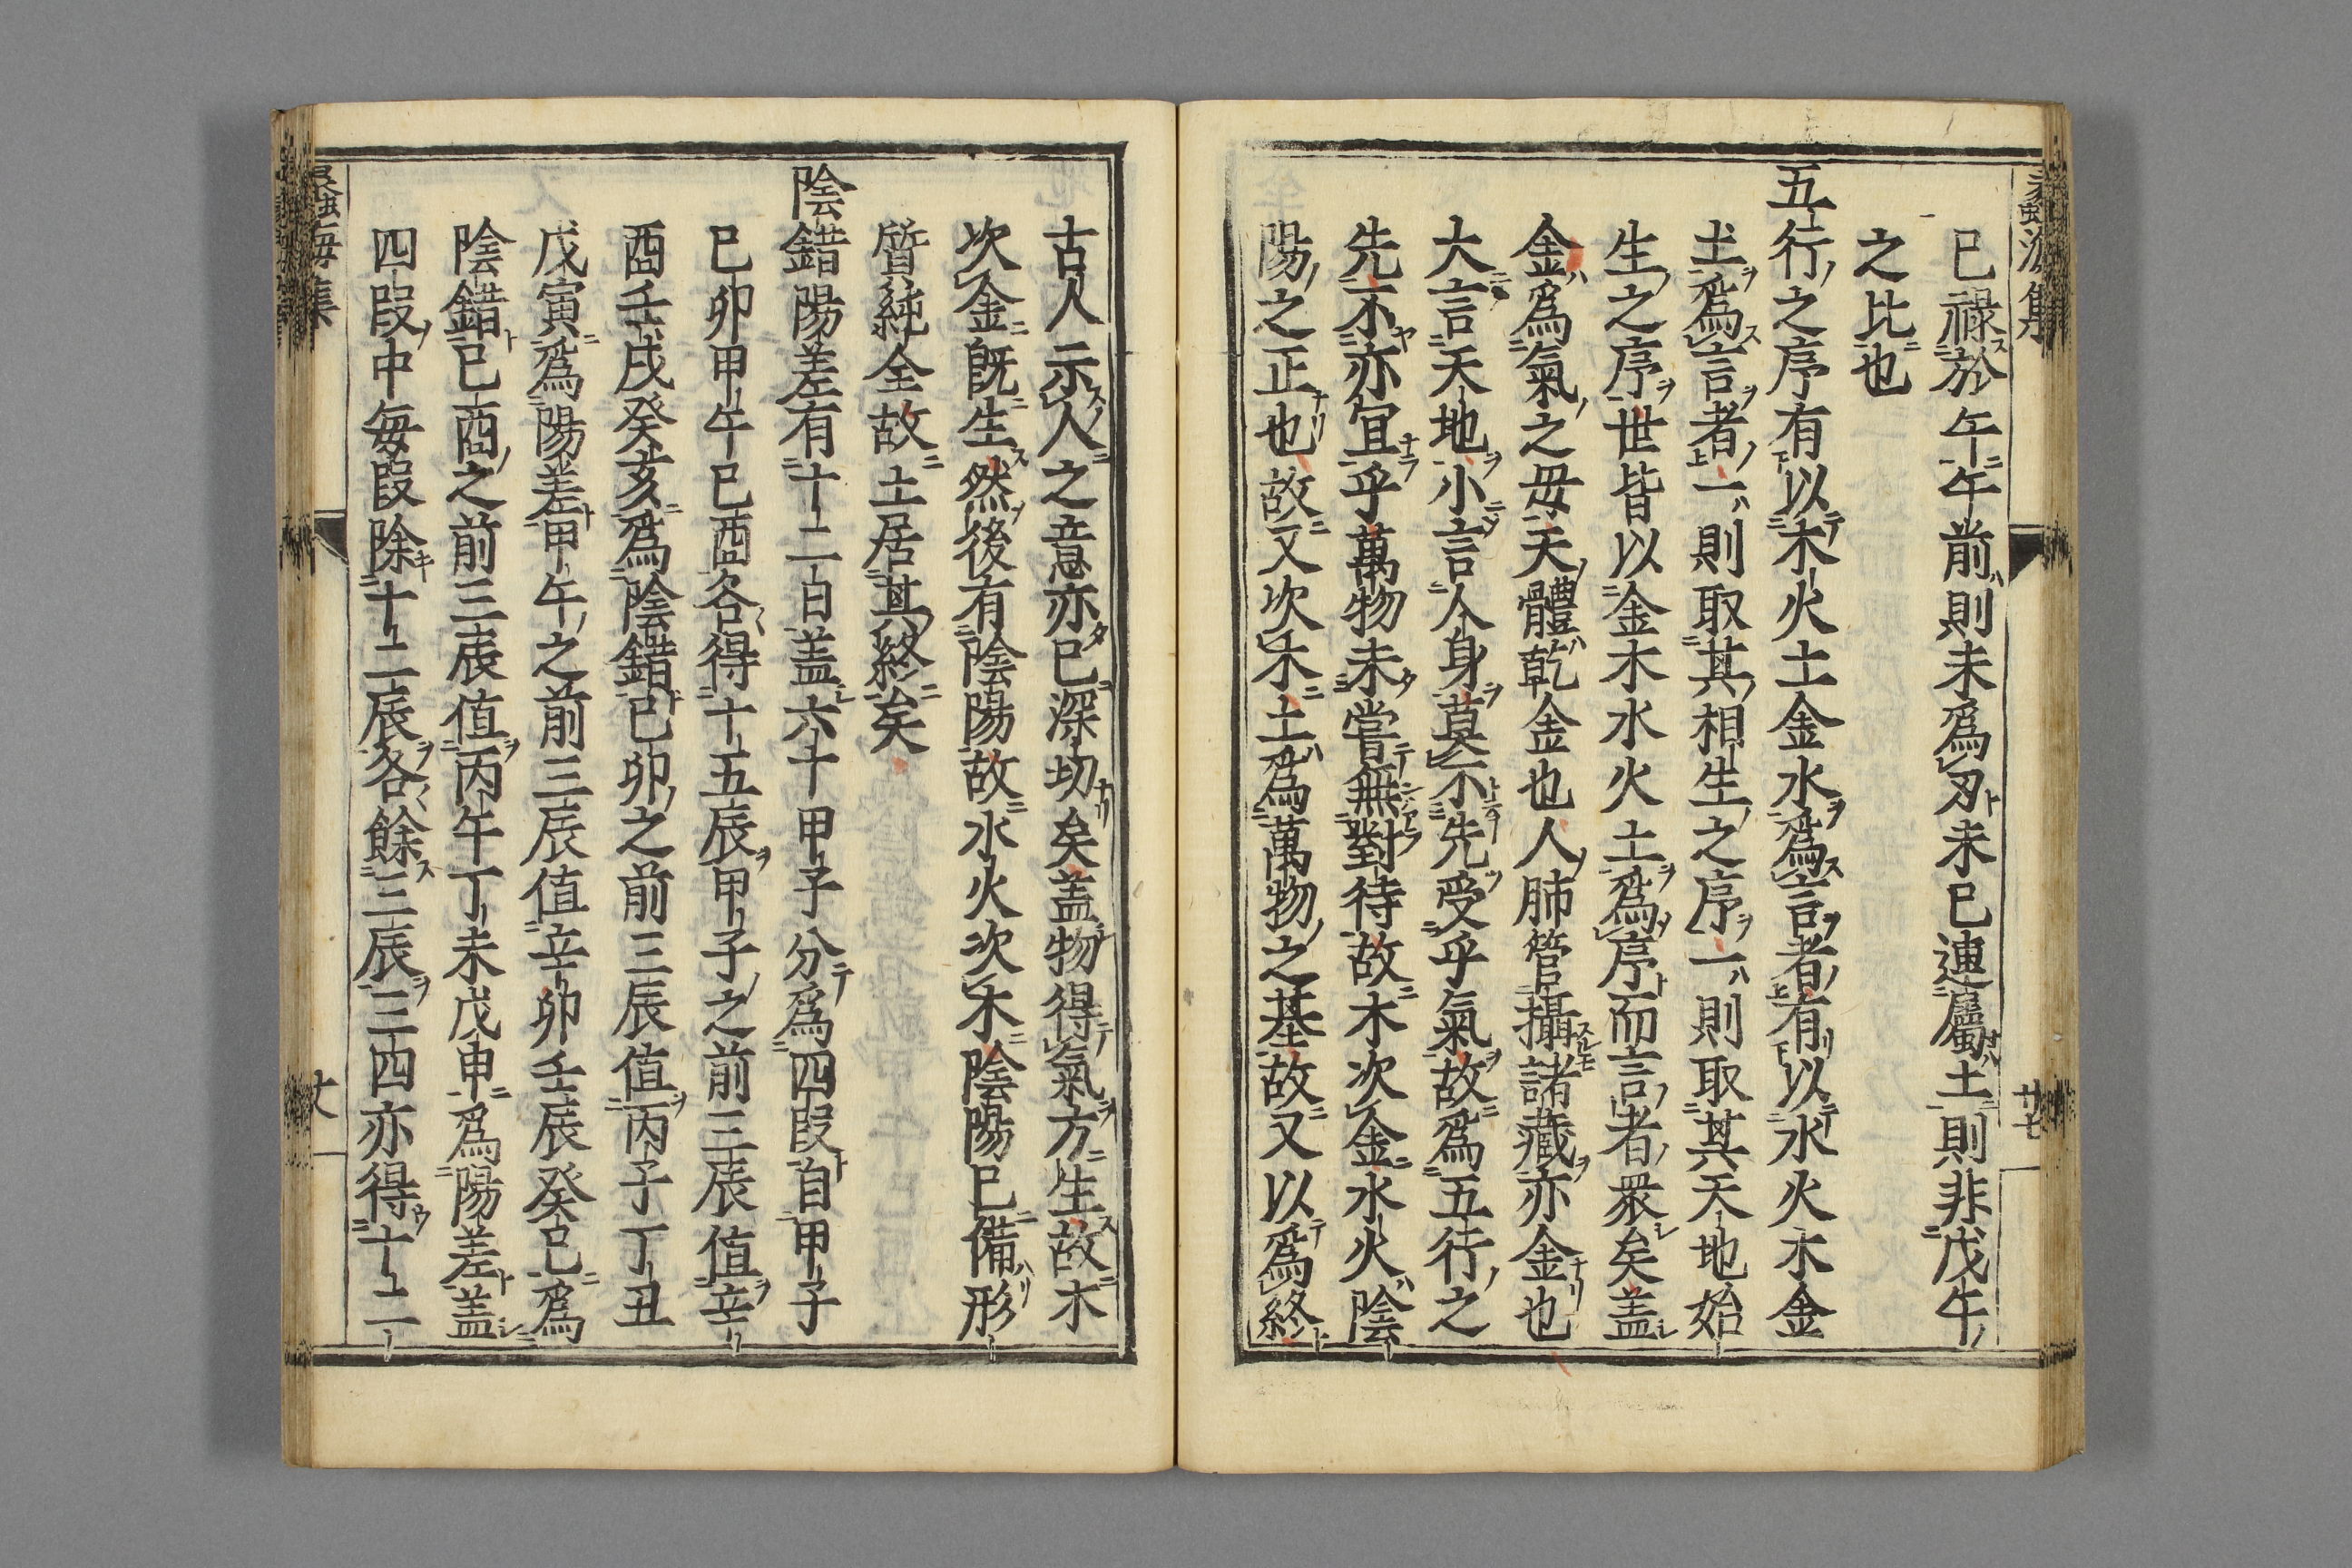 蠡海集
廿七
已祿於午午前則未爲刃未已連屬土則非戊午
之比也
五行之序有以木火土金水爲言者有以水火木金
土爲言者一則取其相生之序一則取其天地始
生之序世皆以金木水火土爲序而言者衆矣盖
金爲氣之毋天體乾金也人肺管攝諸藏亦金也
大言天地小言人身莫不先受乎氣故爲五行之
先不亦冝乎萬物未嘗無對待故木次金水火陰
陽之正也故又次木土爲萬物之基故又以爲終
古人示人之意亦已深切矣盖物得氣方生故木
次金既生然後有陰陽故水火次木陰陽已備形
質純全故土居其終矣
陰錯陽差有十二日盖六十甲子分爲四叚自甲子
已卯甲午已酉各得十五辰甲子之前三辰值辛
酉壬戌癸亥爲陰錯已卯之前三辰值丙子丁丑
戊寅爲陽差甲午之前三辰值辛卯壬辰癸已爲
陰錯已酉之前三辰值丙午丁未戊申爲陽差盖
四叚中毎叚除十二辰各餘三辰三四亦得十二
海集